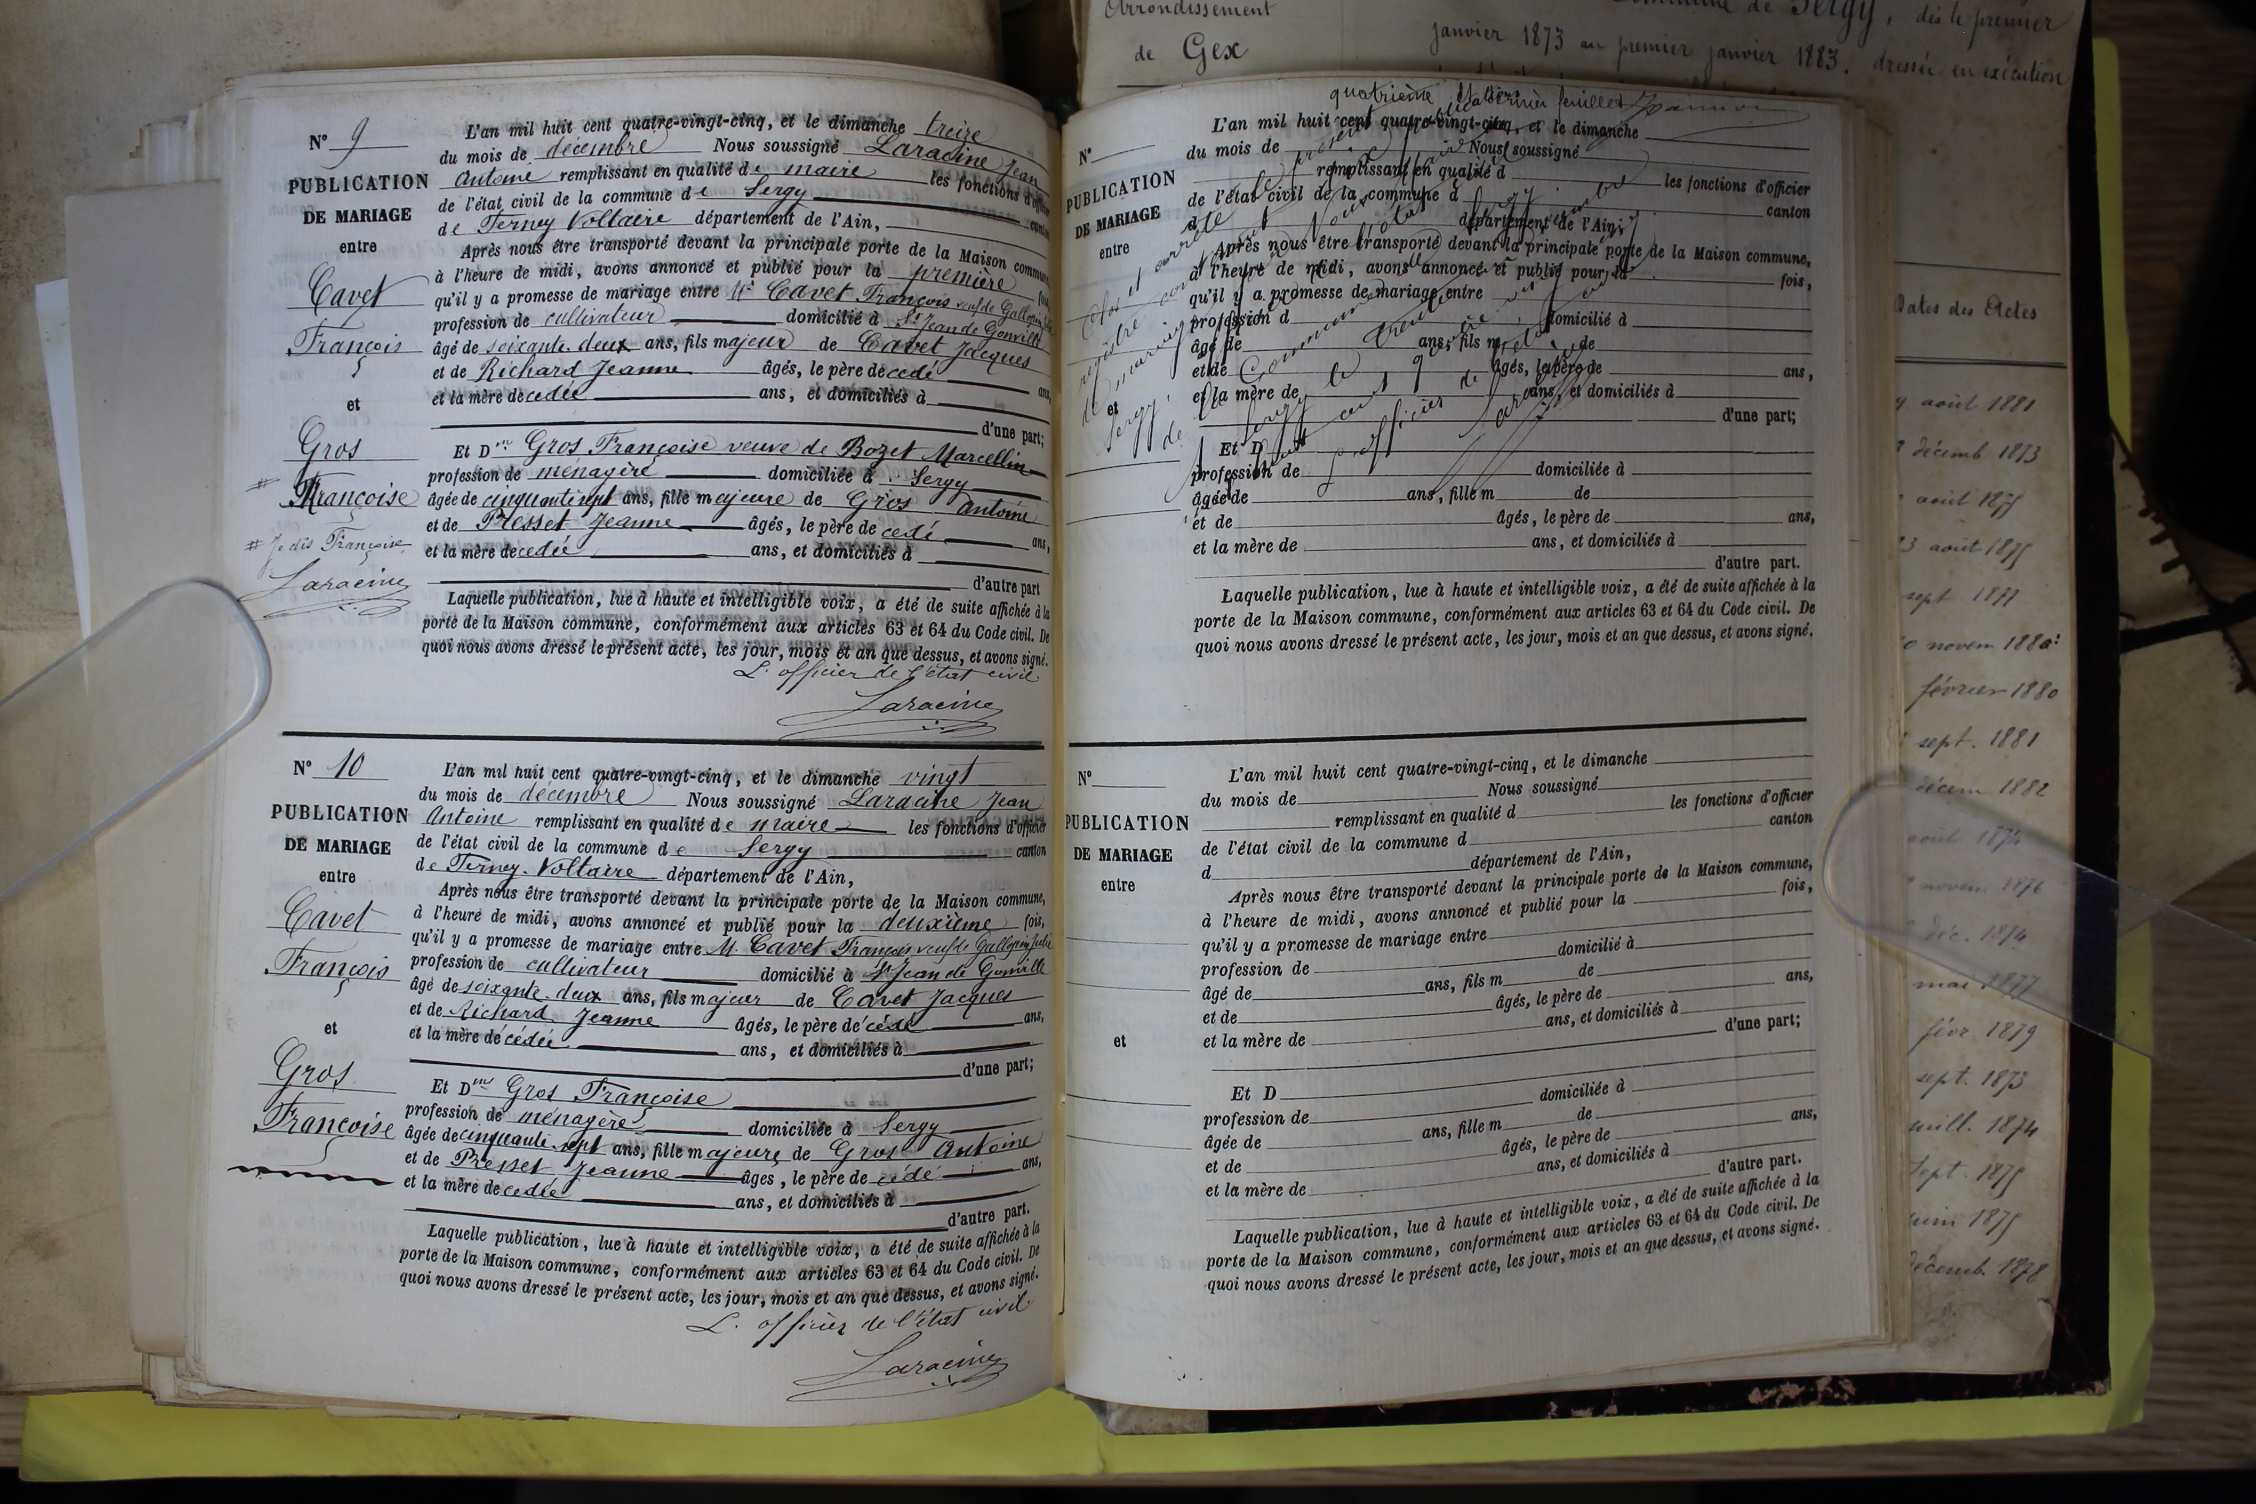 Arrondissement
de Gex
Commune de Sergy, dès le premier
janvier 1873 au premier janvier 1883. dressée en exécution
Dates des Actes
août 1881
décemb 1873
août 1875
23 août 1875
sept. 1877
novem 1880
février 1880
sept. 1881
décem 1882
août 1874
novem. 1876
déc. 1874
mai 1877
févr. 1879
sept. 1873
juill. 1874
sept. 1875
juin 1875
décemb. 1878
N° 9
PUBLICATION
DE MARIAGE
entre
Cavet
François
et
Gros
# Françoise
# Je dis Françoise
Laracine
L'an mil huit cent quatre-vingt-cinq, et le dimanche treize
du mois de décembre Nous soussigné Laracine Jean
Antoine remplissant en qualité de maire les fonctions d'officier
de l'état civil de la commune de Sergy canton
de Ferney Voltaire département de l'Ain,
Après nous être transporté devant la principale porte de la Maison commune,
à l'heure de midi, avons annoncé et publié pour la première fois,
qu'il y a promesse de mariage entre Mr Cavet François veuf de Gallopin Julie
profession de cultivateur domicilié à St Jean de Gonville
âgé de soixante-deux ans, fils majeur de Cavet Jacques
et de Richard Jeanne âgés, le père décedé ans,
et la mère décedée ans, et domiciliés à
d'une part;
Et Dme Gros Françoise veuve de Bozet Marcellin
profession de ménagère domiciliée à Sergy
âgée de cinquante sept ans, fille majeure de Gros Antoine
et de Presset Jeanne âgés, le père de cedé ans,
et la mère decedée ans, et domiciliés à
d'autre part
Laquelle publication, lue à haute et intelligible voix, a été de suite affichée à la
porte de la Maison commune, conformément aux articles 63 et 64 du Code civil. De
quoi nous avons dressé le présent acte, les jour, mois et an que dessus, et avons signé.
L'officier de l'état civil
Laracine
N° 10
PUBLICATION
DE MARIAGE
entre
Cavet
François
et
Gros
Françoise
L'an mil huit cent quatre-vingt-cinq, et le dimanche vingt
du mois de décembre Nous soussigné Laracine Jean
Antoine remplissant en qualité de maire les fonctions d'officier
de l'état civil de la commune de Sergy canton
de Ferney-Voltaire département de l'Ain,
Après nous être transporté devant la principale porte de la Maison commune,
à l'heure de midi, avons annoncé et publié pour la deuxième fois,
qu'il y a promesse de mariage entre M. Cavet François veuf de Gallopin Julie
profession de cultivateur domicilié à St Jean de Gonville
âgé de soixante-deux ans, fils majeur de Cavet Jacques
et de Richard Jeanne âgés, le père décédé ans,
et la mère décédée ans, et domiciliés à
d'une part;
Et Dme Gros Françoise
profession de ménagère domiciliée à Sergy
âgée de cinquante sept ans, fille majeure de Gros Antoine
et de Presset Jeanne âgés, le père de cédé ans,
et la mère decedée ans, et domiciliés à
d'autre part.
Laquelle publication, lue à haute et intelligible voix, a été de suite affichée à la
porte de la Maison commune, conformément aux articles 63 et 64 du Code civil. De
quoi nous avons dressé le présent acte, les jour, mois et an que dessus, et avons signé.
L'officier de l'état civil
Laracine
quatrième et dernier feuillet
N°
PUBLICATION
DE MARIAGE
entre
et
L'an mil huit cent quatre-vingt-cinq, et le dimanche
du mois de Nous soussigné
remplissant en qualité d les fonctions d'officier
de l'état civil de la commune d canton
d département de l'Ain,
Après nous être transporté devant la principale porte de la Maison commune,
à l'heure de midi, avons annoncé et publié pour la fois,
qu'il y a promesse de mariage entre
profession d domicilié à
âgé de ans, fils m de
et de âgés, le père de ans,
et la mère de ans, et domiciliés à
d'une part;
Et D
profession de domiciliée à
âgée de ans, fille m de
et de âgés, le père de ans,
et la mère de ans, et domiciliés à
d'autre part.
Laquelle publication, lue à haute et intelligible voix, a été de suite affichée à la
porte de la Maison commune, conformément aux articles 63 et 64 du Code civil. De
quoi nous avons dressé le présent acte, les jour, mois et an que dessus, et avons signé.
Clos et arrêté le présent
registre
de mariage
Sergy,
Sergy le trente
l'officier de
Laracine
N°
PUBLICATION
DE MARIAGE
entre
et
L'an mil huit cent quatre-vingt-cinq, et le dimanche
du mois de Nous soussigné
remplissant en qualité d les fonctions d'officier
de l'état civil de la commune d canton
d département de l'Ain,
Après nous être transporté devant la principale porte de la Maison commune,
à l'heure de midi, avons annoncé et publié pour la fois,
qu'il y a promesse de mariage entre
profession de domicilié à
âgé de ans, fils m de
et de âgés, le père de ans,
et la mère de ans, et domiciliés à
d'une part;
Et D
profession de domiciliée à
âgée de ans, fille m de
et de âgés, le père de ans,
et la mère de ans, et domiciliés à
d'autre part.
Laquelle publication, lue à haute et intelligible voix, a été de suite affichée à la
porte de la Maison commune, conformément aux articles 63 et 64 du Code civil. De
quoi nous avons dressé le présent acte, les jour, mois et an que dessus, et avons signé.